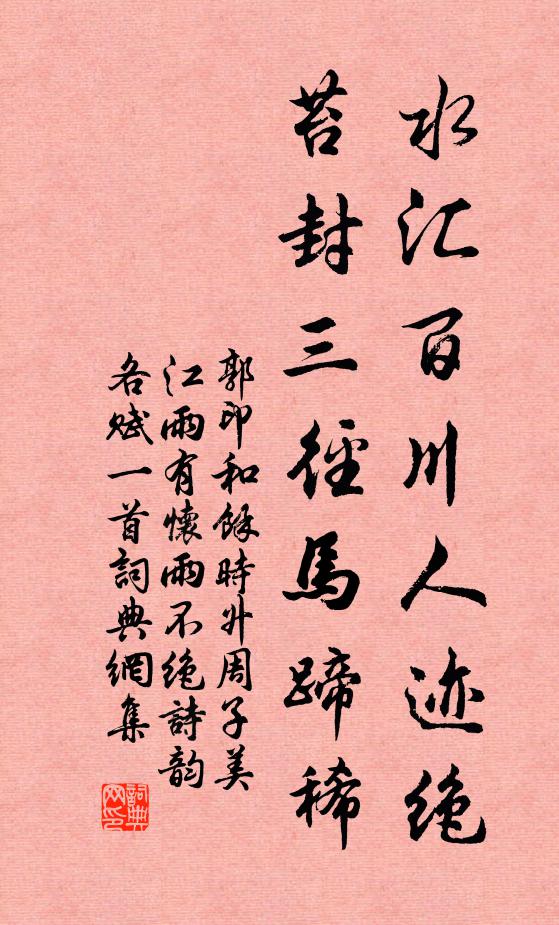 水汇百川人迹绝
苔封三径馬蹄稀
郭印和餘時升周子美
江雨有懷雨不绝詩韵
各赋一首詞典網集
詞典
网印